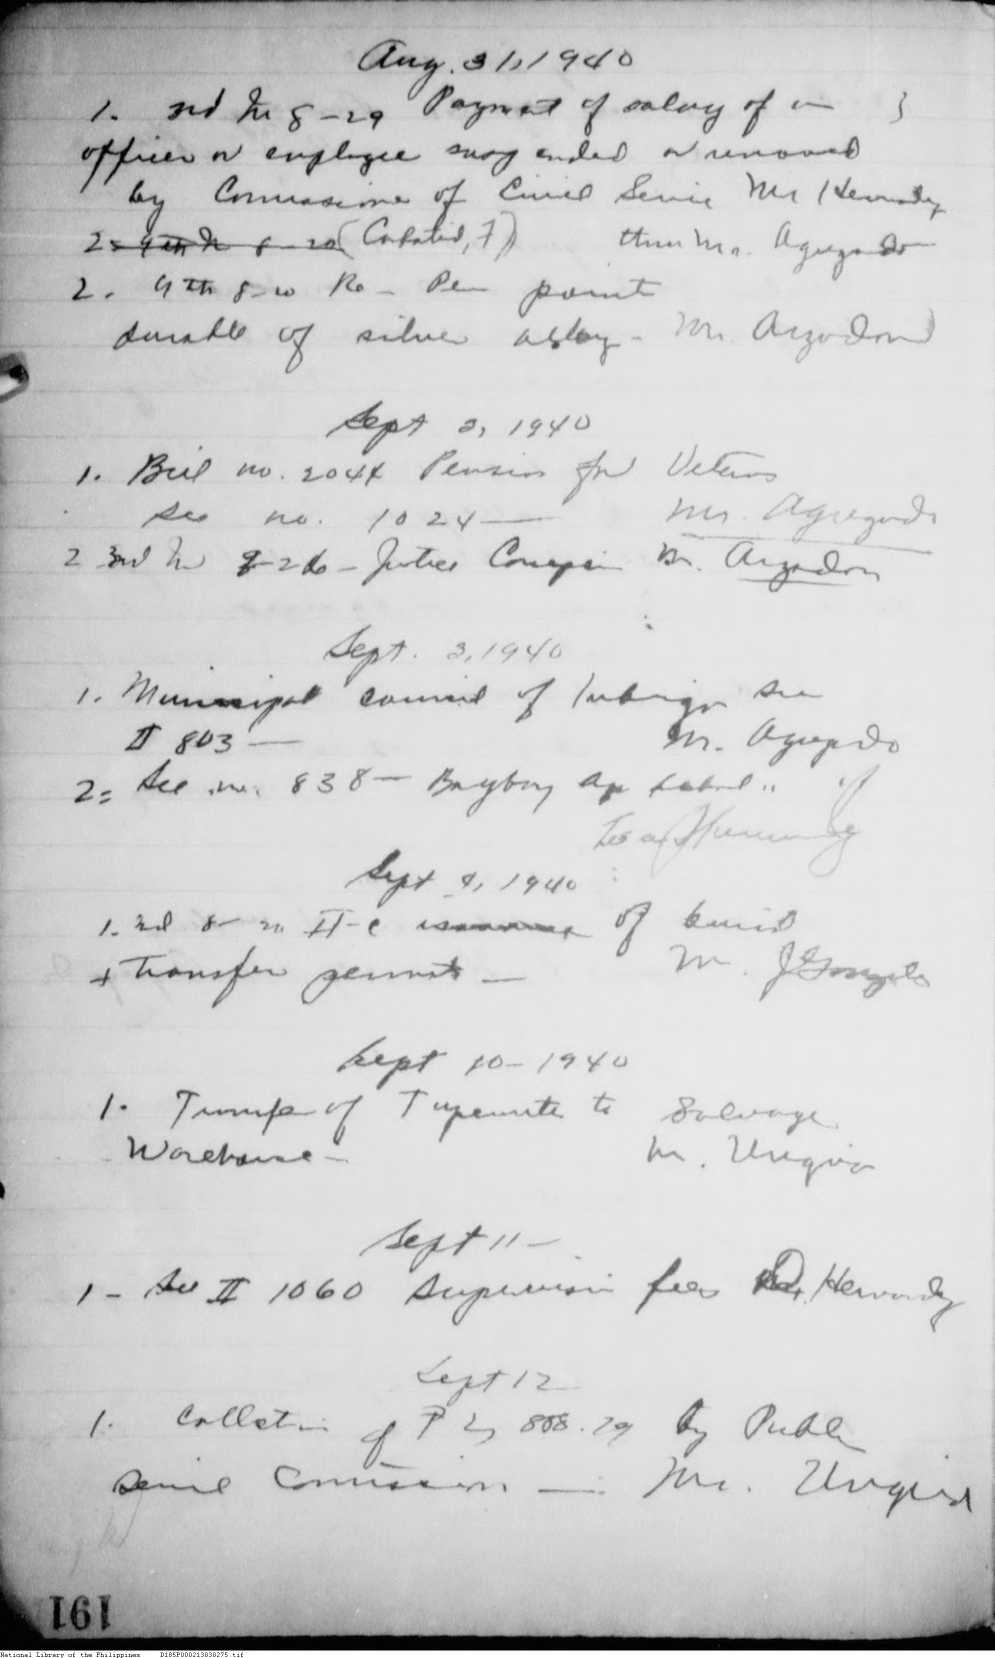 Aug. 31, 1940
1. 3rd In 8-29 Payment of salary of an
officer or employee suspended or removed
by Commissioner of Civil Service Mr Hernandez
2. 9th In 8-20 (Cabated, F) thru Mr. Agregado
2. 9th 8-20 Re- Pen point
durable of silver alloy - Mr. Arzadon
Sept 3, 1940
1. Bill no. 2044 Pension for Veterans
see no. 1024 — Mr. Agregado
2 3rd In 8-26 - Justice Mr. Arzadon
Sept. 3, 1940
1. Municipal council of see
II 803 — Mr. Agregado
2= See no. 838 — Baybay
Sept 9, 1940
1. 3rd 8- II-C issuance of
+ transfer permits — Mr. J Gonzales
Sept 10-1940
1. Transfer of to Salvage
Warehouse - Mr. Ungria
Sept 11 -
1 - See II 1060 Supervision fees Hernandez
Sept 12
1. Collection of P 2, 888.29 by Public
Service Commission — Mr. Ungria
191
National Library of the Philippines D185P000213838275.tif